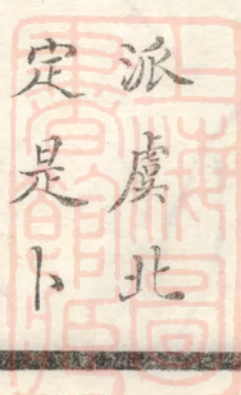 派虞北
定是卜